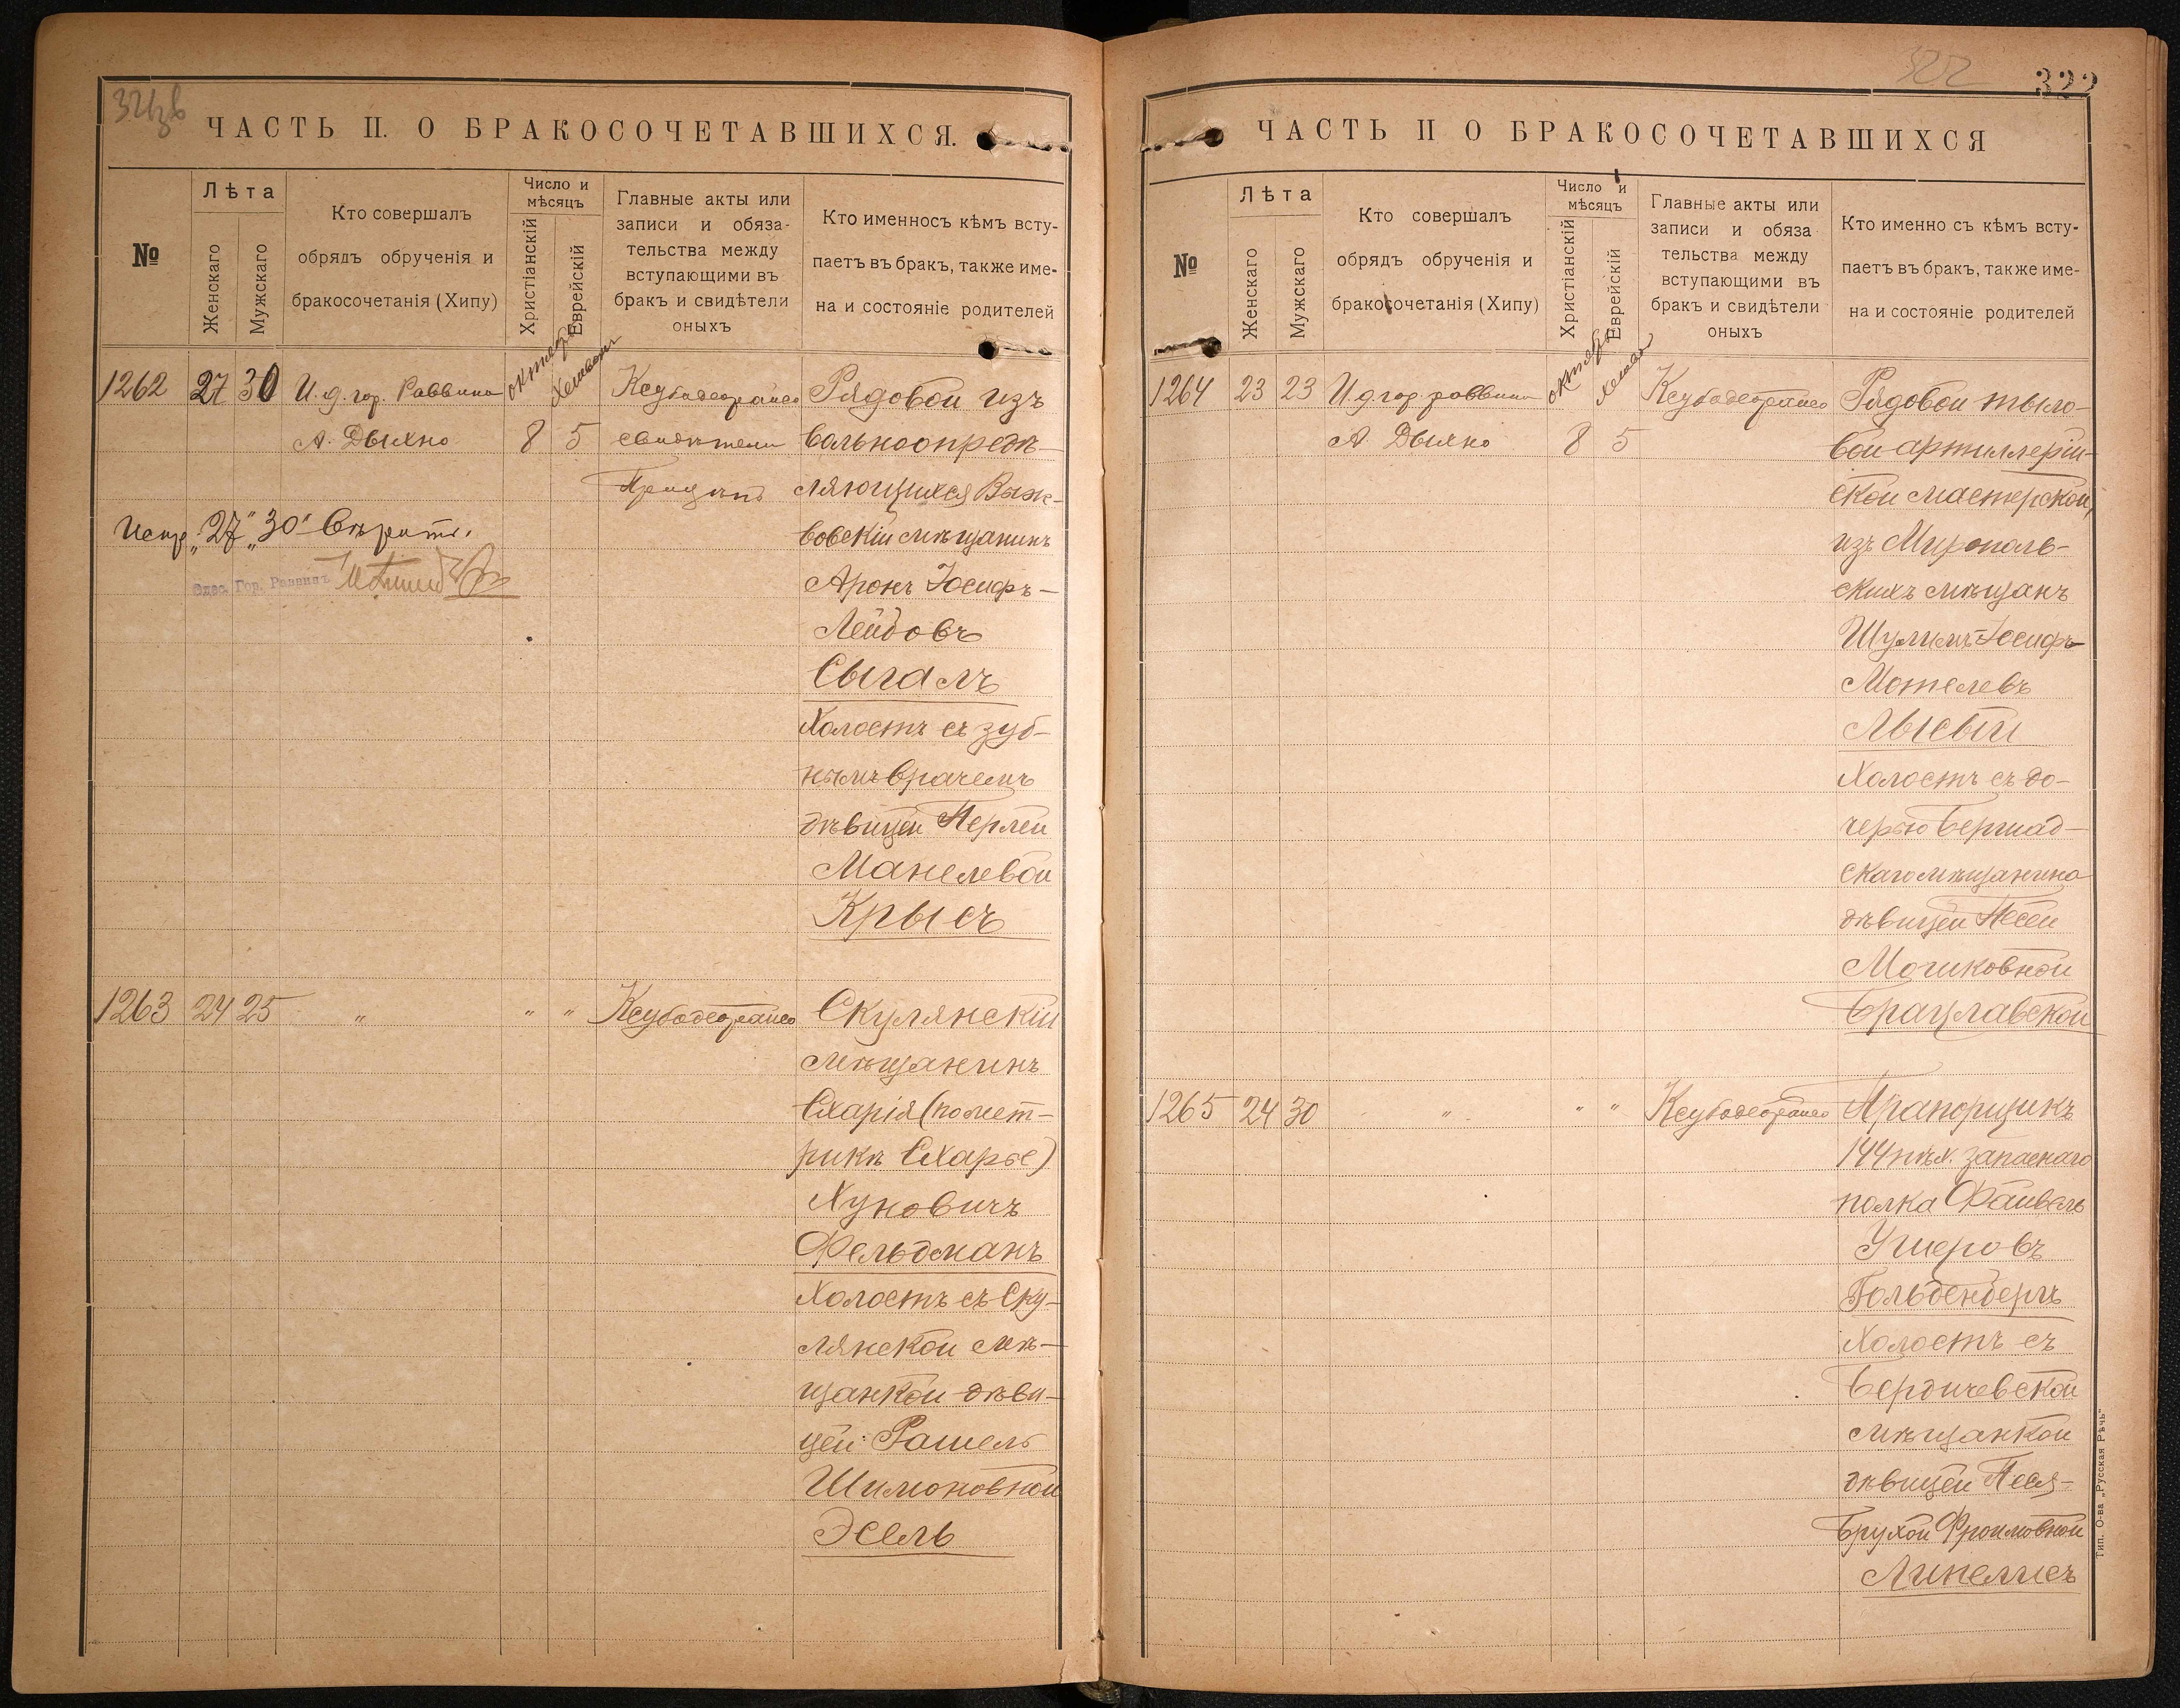 321 об
ЧАСТЬ II. О БРАКОСОЧЕТАВШИХСЯ.
№
Лѣта
Женскаго
Мужскаго
Кто совершалъ
обрядъ обрученія и
бракосочетанія (Хипу)
Число и
мѣсяцъ
Христіанскій
Еврейскій
Главные акты или
записи и обяза-
тельства между
вступающими въ
бракъ и свидѣтели
оныхъ
Кто именносъ кѣмъ всту-
паетъ въ бракъ, также име-
на и состояніе родителей
октябрь
Хешванъ
1262 27 30 И. д. гор. Раввина
А. Дыхно
8 5
свидѣтели
Рядовой изъ
вольноопредѣ-
ляющихся Выж-
вовскій мѣщанинъ
Аронъ Іосифъ-
Лейбовъ
Сыгалъ
Холостъ съ зуб-
нымъ врачемъ
дѣвицей Перлей
Манелевой
Крысъ
Испр. „27" „30" вѣрить.
Одес. Гор. Раввинъ
1263 24 25 " " "
Скулянскій
мѣщанинъ
Схарія (по мет-
рикѣ Схарье)
Хуновичъ
Фельдманъ
Холостъ съ Ску-
лянской мѣ-
щанкой дѣви-
цей Рашель
Шимоновной
Эсель
322
322
ЧАСТЬ II О БРАКОСОЧЕТАВШИХСЯ
№
Лѣта
Женскаго
Мужскаго
Кто совершалъ
обрядъ обрученія и
бракосочетанія (Хипу)
Число и
мѣсяцъ
Христіанскій
Еврейскій
Главные акты или
записи и обяза
тельства между
вступающими въ
бракъ и свидѣтели
оныхъ
Кто именно съ кѣмъ всту-
паетъ въ бракъ, также име-
на и состояніе родителей
октябрь
1264 23 23 И. д. гор. раввина
А. Дыхно
8 5
Рядовой тыло-
вой артиллерій-
ской мастерской,
изъ Мирополь-
скихъ мѣщанъ
Шулимъ-Іосифъ
Мотелевъ
Лысый
Холостъ съ до-
черью Бершад-
скаго мѣщанина
дѣвицей Песей
Мошковной
Брацлавской
1265 24 30 " " "
Прапорщикъ
144 пѣх. запаснаго
полка Файвель
Ушеровъ
Гольденбергъ
Холостъ съ
Бердичевской
мѣщанкой
дѣвицей Песя-
Брухой Фроимовной
Тип. О-ва „Русская Рѣчь"